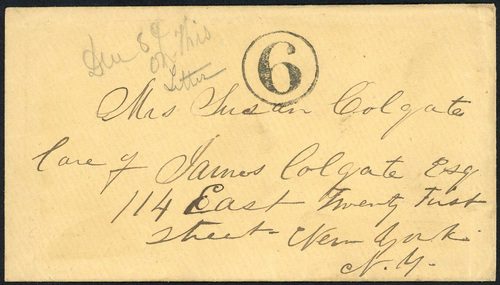 Due 6 on this
Letter
6
Mrs Susan Colgate
Care of James Colgate Esq
114 East Twenty First
street New York
N.Y.